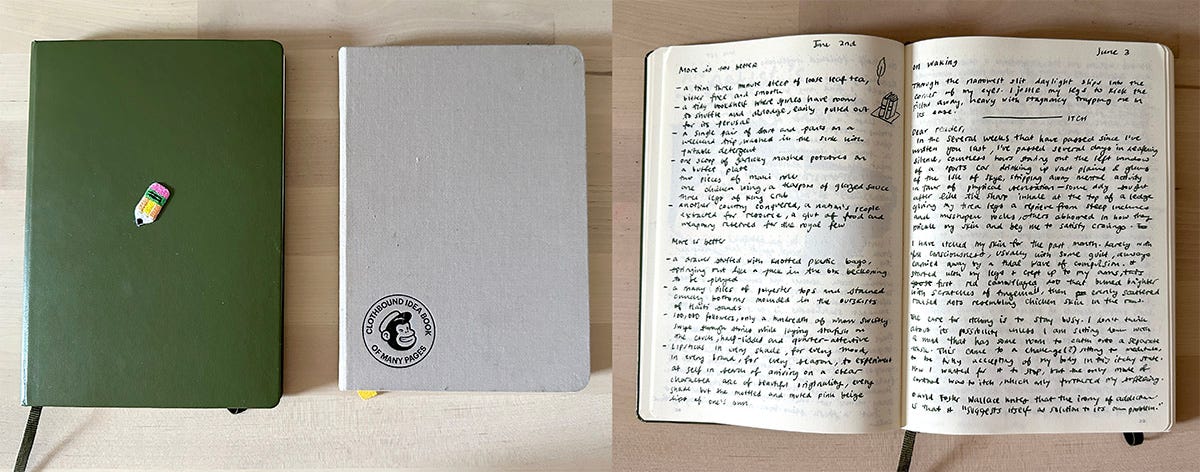 CLOTHBOUND IDEA BOOK
OF MANY PAGES
June 2nd
More is too better
- a trim three minute steep of loose leaf tea,
bitter free and smooth
- a tidy bookshelf where spines have room
to shuffle and dislodge, easily pulled out
for its perusal
- a single pair of and pants on a
trip, washed in the sink with
detergent
- one scoop of garlicky mashed potatoes on
a buffet plate
pieces of maki roll
one chicken wing, a teaspoon of glazed sauce
three legs of king crab
- another country conquered, a nation's people
extracted for resource, a glut of food and
weaponry reserved for the royal few
More is better
- a drawer stuffed with knotted plastic bags,
springing out like a jack in the box beckoning
to be played
- a many piles of polyester tops and stained
bottoms mounded in the outskirts
of
- 100,000 followers, only a hundredth of whom
swipe through stories while laying on
the couch, half-lidded and quarter-attentive
- lipsticks in every shade, for every mood,
in every brand, for every season, to experiment
at self in search of arriving on a clear
character arc of beautiful originality, every
shade but the mottled and muted pink beige
lips of one's own.
June 3
on waking
Through the narrowest slit daylight slips into the
corner of my eyes. I jostle my legs to kick the
away, heavy with stagnancy trapping me in
its ease.
ITCH
Dear reader,
In the several weeks that have passed since I've
written you last, I've passed several days in
silence, countless hours out the left window
of a sports car drinking up vast plains &
of the Isle of Skye, stripping away mental activity
in favor of physical some day sought
after like the sharp inhale at the top of a ledge
giving my tired legs a reprieve from steep inclines
and misshapen rocks, others abhorred in how they
prickle my skin and beg me to satisfy cravings.
I have itched my skin for the past month. Rarely with
full consciousness, usually with some guilt, always
carried away by a tidal wave of compulsion. It
started with my legs & crept up to my arms,
first red camouflaged dot that burned brighter
with scratches of fingernail, then evenly scattered
raised dots resembling chicken skin in the
The cure for itching is to stay busy. I don't think
about its possibility unless I am sitting down with
a mind that has some room to calm into a separate
This came to a challenge(?) sitting to meditate,
to be fully accepting of my body in this itchy state.
How I wanted for it to stop, but the only mode of
control was to itch, which only furthered my suffering.
David Foster Wallace writes that the irony of addiction
is that it "suggests itself as solution to its own problem."